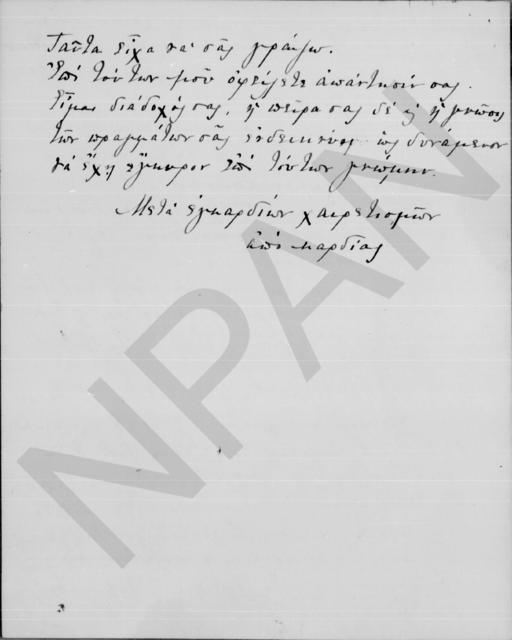 Ταῦτα εἶχα νὰ σᾶς γράψω.
Ἐπὶ τούτων μοῦ ὀφείλετε ἀπάντησίν σας.
Εἶμαι διάδοχός σας, ἡ πεῖρα σας δὲ κ ἡ γνῶσις
τῶν πραγμάτων σᾶς ἐνδεικνύει ὡς δυνάμενον
νὰ ἔχῃ ἔγκυρον ἐπὶ τούτων γνώμην.
Μετὰ ἐγκαρδίων χαιρετισμῶν
ἀπὸ καρδίας
NPAN